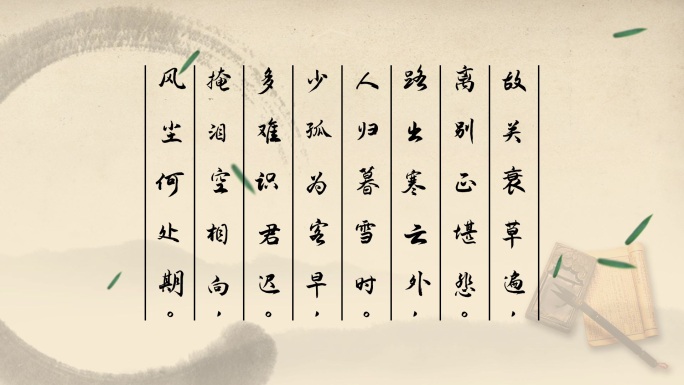 故关衰草遍，
离别正堪悲。
路出寒云外，
人归暮雪时。
少孤为客早，
多难识君迟。
掩泪空相向，
风尘何处期。